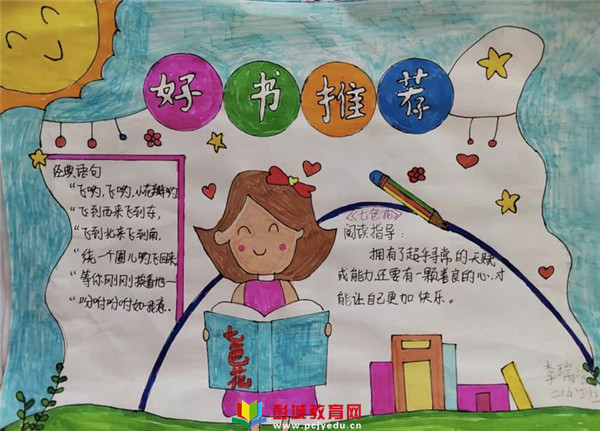 好书推荐
经典语句
“飞哟,飞哟,小花瓣哟,
“飞到西来飞到东,
“飞到北来飞到南,
“绕一个圈儿哟飞回来
“等你刚刚挨着地—
“吩咐吩咐如意。
《七色花》
阅读指导:
拥有了超乎寻常的天赋
或能力,还要有一颗善良的心,才
能让自己更加快乐。
七色花
李瑞
彭城教育网
www.pcjyedu.cn